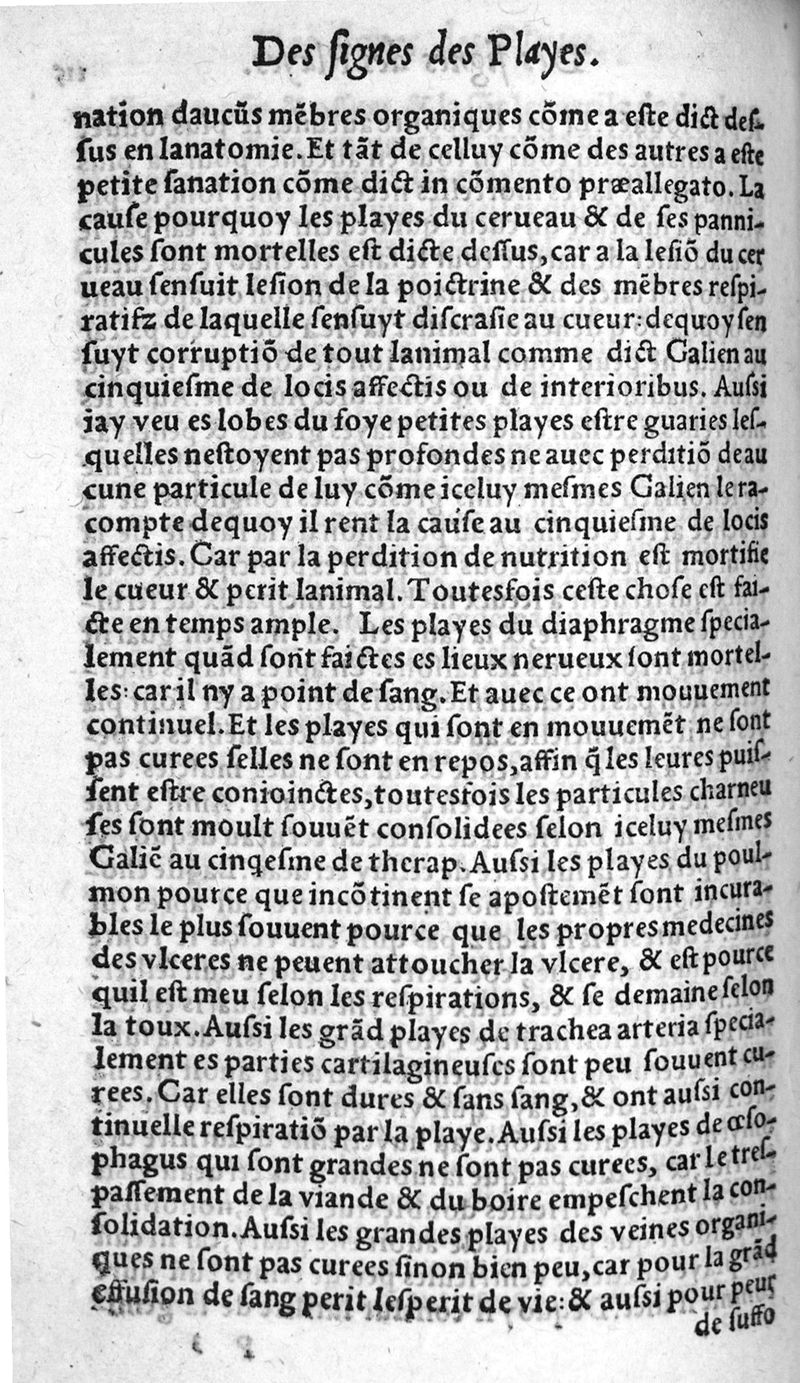 Des ſignes des Playes.
nation daucũs mẽbres organiques cõme a eſte dict deſ-
ſus en lanatomie. Et tãt de celluy cõme des autres a eſte
petite ſanation cõme dict in cõmento præallegato. La
cauſe pourquoy les playes du cerueau & de ſes panni-
cules ſont mortelles eſt dicte deſſus, car a la leſiõ du cer
ueau ſenſuit leſion de la poictrine & des mẽbres reſpi-
ratifz de laquelle ſenſuyt diſcraſie au cueur: dequoy ſen
ſuyt corruptiõ de tout lanimal comme dict Galien au
cinquieſme de locis affectis ou de interioribus. Auſsi
iay veu es lobes du foye petites playes eſtre guaries leſ-
quelles neſtoyent pas profondes ne auec perditiõ deau
cune particule de luy cõme iceluy meſmes Galien le ra-
compte dequoy il rent la cauſe au cinquieſme de locis
affectis. Car par la perdition de nutrition eſt mortifie
le cueur & perit lanimal. Toutesfois ceſte choſe eſt fai-
cte en temps ample. Les playes du diaphragme ſpecia-
lement quãd ſont faictes es lieux nerueux ſont mortel-
les: car il ny a point de ſang. Et auec ce ont mouuement
continuel. Et les playes qui ſont en mouuemẽt ne ſont
pas curees ſelles ne ſont en repos, affin q̃ les leures puiſ-
ſent eſtre conioinctes, toutesfois les particules charneu
ſes ſont moult ſouuẽt conſolidees ſelon iceluy meſmes
Galiẽ au cinqeſme de therap. Auſsi les playes du poul-
mon pource que incõtinent ſe apoſtemẽt ſont incura-
bles le plus ſouuent pource que les propres medecines
des vlceres ne peuent attoucher la vlcere, & eſt pource
quil eſt meu ſelon les reſpirations, & ſe demaine ſelon
la toux. Auſsi les grãd playes de trachea arteria ſpecia-
lement es parties cartilagineuſes ſont peu ſouuent cu-
rees. Car elles ſont dures & ſans ſang, & ont auſsi con-
tinuelle reſpiratiõ par la playe. Auſsi les playes de œſo-
phagus qui ſont grandes ne ſont pas curees, car le treſ-
paſſement de la viande & du boire empeſchent la con-
ſolidation. Auſsi les grandes playes des veines organi-
ques ne ſont pas curees ſinon bien peu, car pour la grãd
effuſion de ſang perit leſperit de vie: & auſsi pour peur
de ſuffo